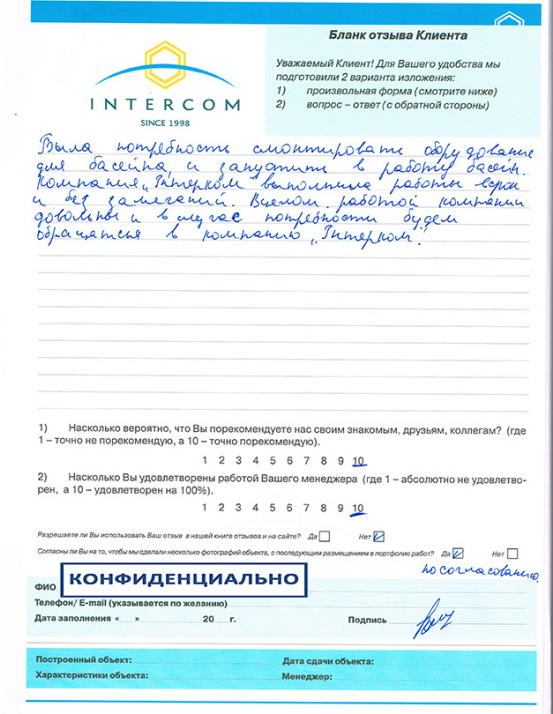 Бланк отзыва Клиента
Уважаемый Клиент! Для Вашего удобства мы
подготовили 2 варианта изложения:
1) произвольная форма (смотрите ниже)
2) вопрос – ответ (с обратной стороны)
INTERCOM
SINCE 1998
Была потребность смонтировать оборудование
для басейна и запустить в работу басейн.
Компания „Інтерком" выполнила работы в срок
и без замечаний. Вцелом работой компании
довольны и в случае потребности будем
обращаться в компанию „Інтерком".
1) Насколько вероятно, что Вы порекомендуете нас своим знакомым, друзьям, коллегам? (где
1 – точно не порекомендую, а 10 – точно порекомендую).
1 2 3 4 5 6 7 8 9 10
2) Насколько Вы удовлетворены работой Вашего менеджера (где 1 – абсолютно не удовлетво-
рен, а 10 – удовлетворен на 100%).
1 2 3 4 5 6 7 8 9 10
Разрешаете ли Вы использовать Ваш отзыв в нашей книге отзывов и на сайте? Да Нет
Согласны ли Вы на то, чтобы мы сделали несколько фотографий объекта, с последующим размещением в портфолио работ? Да Нет
по согласованию.
ФИО КОНФИДЕНЦИАЛЬНО
Телефон/ E-mail (указывается по желанию)
Дата заполнения « » 20 г. Подпись
Построенный объект: Дата сдачи объекта:
Характеристики объекта: Менеджер: